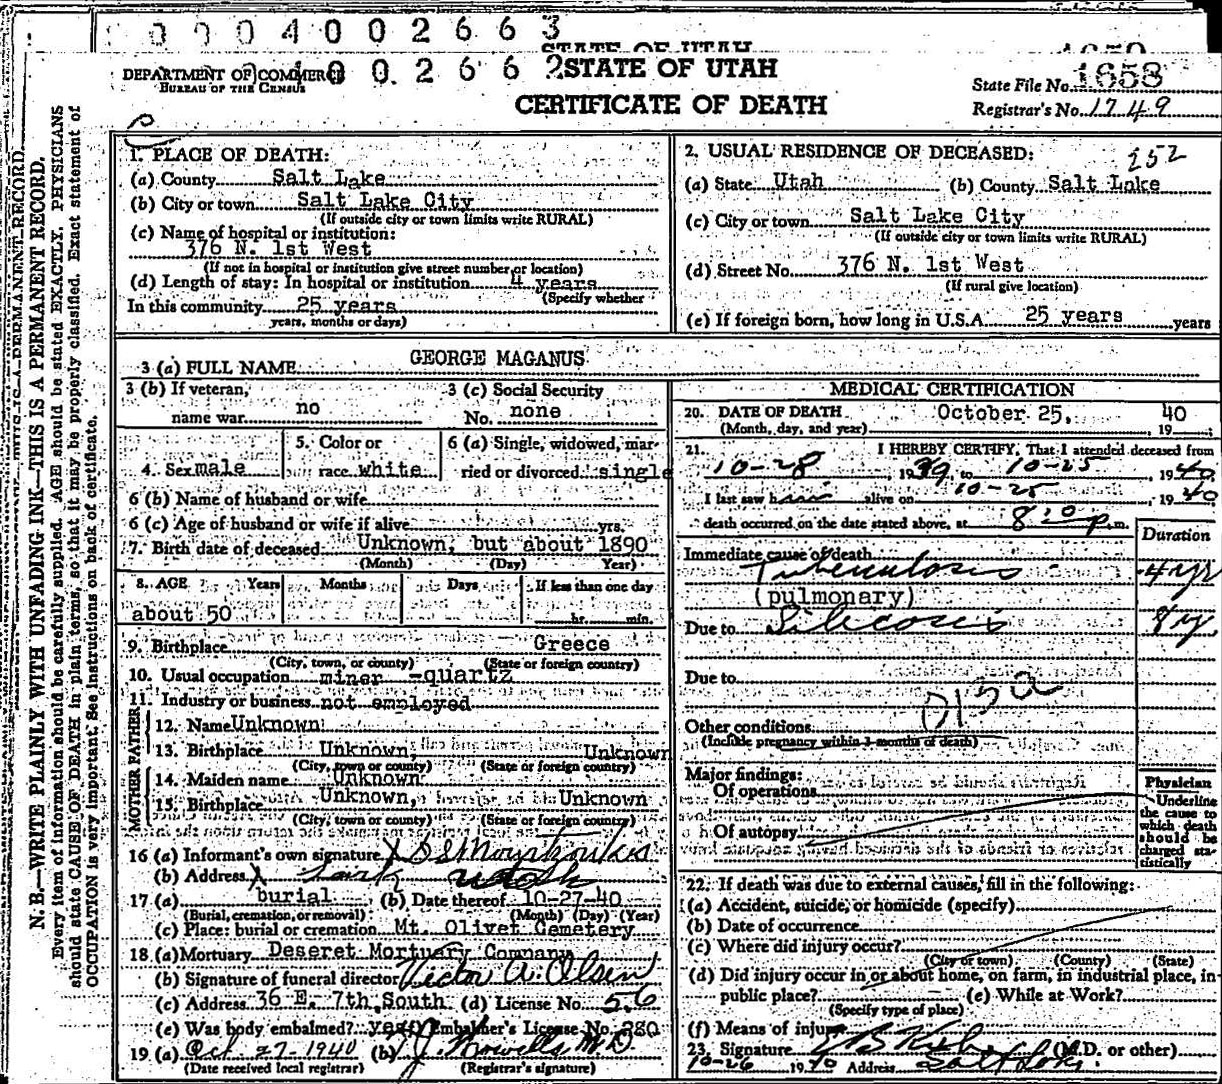 0 0 0 4 0 0 2 6 6 3
STATE OF UTAH 1659
DEPARTMENT OF COMMERCE 0 4 0 0 2 6 6 2 STATE OF UTAH
BUREAU OF THE CENSUS
State File No. 1658
CERTIFICATE OF DEATH
Registrar's No. 1749
N.B.—WRITE PLAINLY WITH UNFADING INK—THIS IS A PERMANENT RECORD.
Every item of information should be carefully supplied. AGE should be stated EXACTLY. PHYSICIANS
should state CAUSE OF DEATH in plain terms, so that it may be properly classified. Exact statement of
OCCUPATION is very important. See instructions on back of certificate.
1. PLACE OF DEATH:
(a) County Salt Lake
(b) City or town Salt Lake City
(If outside city or town limits write RURAL)
(c) Name of hospital or institution:
376 N. 1st West
(If not in hospital or institution give street number or location)
(d) Length of stay: In hospital or institution 4 years
(Specify whether
In this community 25 years
years, months or days)
2. USUAL RESIDENCE OF DECEASED: 252
(a) State Utah (b) County Salt Lake
(c) City or town Salt Lake City
(If outside city or town limits write RURAL)
(d) Street No. 376 N. 1st West
(If rural give location)
(e) If foreign born, how long in U.S.A. 25 years years
3 (a) FULL NAME GEORGE MAGANUS
3 (b) If veteran,
name war no
3 (c) Social Security
No. none
4. Sex male
5. Color or
race white
6 (a) Single, widowed, mar-
ried or divorced single
6 (b) Name of husband or wife
6 (c) Age of husband or wife if alive yrs.
7. Birth date of deceased Unknown, but about 1890
(Month) (Day) Year)
8. AGE Years Months Days If less than one day
about 50 hr. min.
9. Birthplace Greece
(City, town, or county) (State or foreign country)
10. Usual occupation miner -quartz
11. Industry or business not employed
FATHER
12. Name Unknown
13. Birthplace Unknown, Unknown
(City, town or county) (State or foreign country)
MOTHER
14. Maiden name Unknown
15. Birthplace Unknown, Unknown
(City, town or county) (State or foreign country)
16 (a) Informant's own signature
(b) Address Lark Utah
17 (a) burial (b) Date thereof 10-27-40
(Burial, cremation, or removal) (Month) (Day) (Year)
(c) Place: burial or cremation Mt. Olivet Cemetery
18 (a) Mortuary Deseret Mortuary Company
(b) Signature of funeral director Victor A. Olsen
(c) Address 36 E. 7th South (d) License No. 56
(e) Was body embalmed? yes Embalmer's License No. 380
19 (a) Oct 27-1940 (b) T.J. Howells M.D.
(Date received local registrar) (Registrar's signature)
MEDICAL CERTIFICATION
20. DATE OF DEATH October 25, 1940
(Month, day, and year)
21. I HEREBY CERTIFY, That I attended deceased from
10-28, 1939, to 10-25, 1940,
I last saw him alive on 10-25, 1940
death occurred on the date stated above, at 8:10 p.m.
Duration
Immediate cause of death
Tuberculosis 4 yr
(pulmonary)
Due to Silicosis 8 y.
Due to
013a
Other conditions
(Include pregnancy within 3 months of death)
Major findings:
Of operations
Of autopsy
Physician
Underline
the cause to
which death
should be
charged sta-
tistically
22. If death was due to external causes, fill in the following:
(a) Accident, suicide, or homicide (specify)
(b) Date of occurrence
(c) Where did injury occur?
(City or town) (County) (State)
(d) Did injury occur in or about home, on farm, in industrial place, in
public place? (e) While at Work?
(Specify type of place)
(f) Means of injury
23. Signature (M.D. or other)
10-26 1940 Address Salt Lake